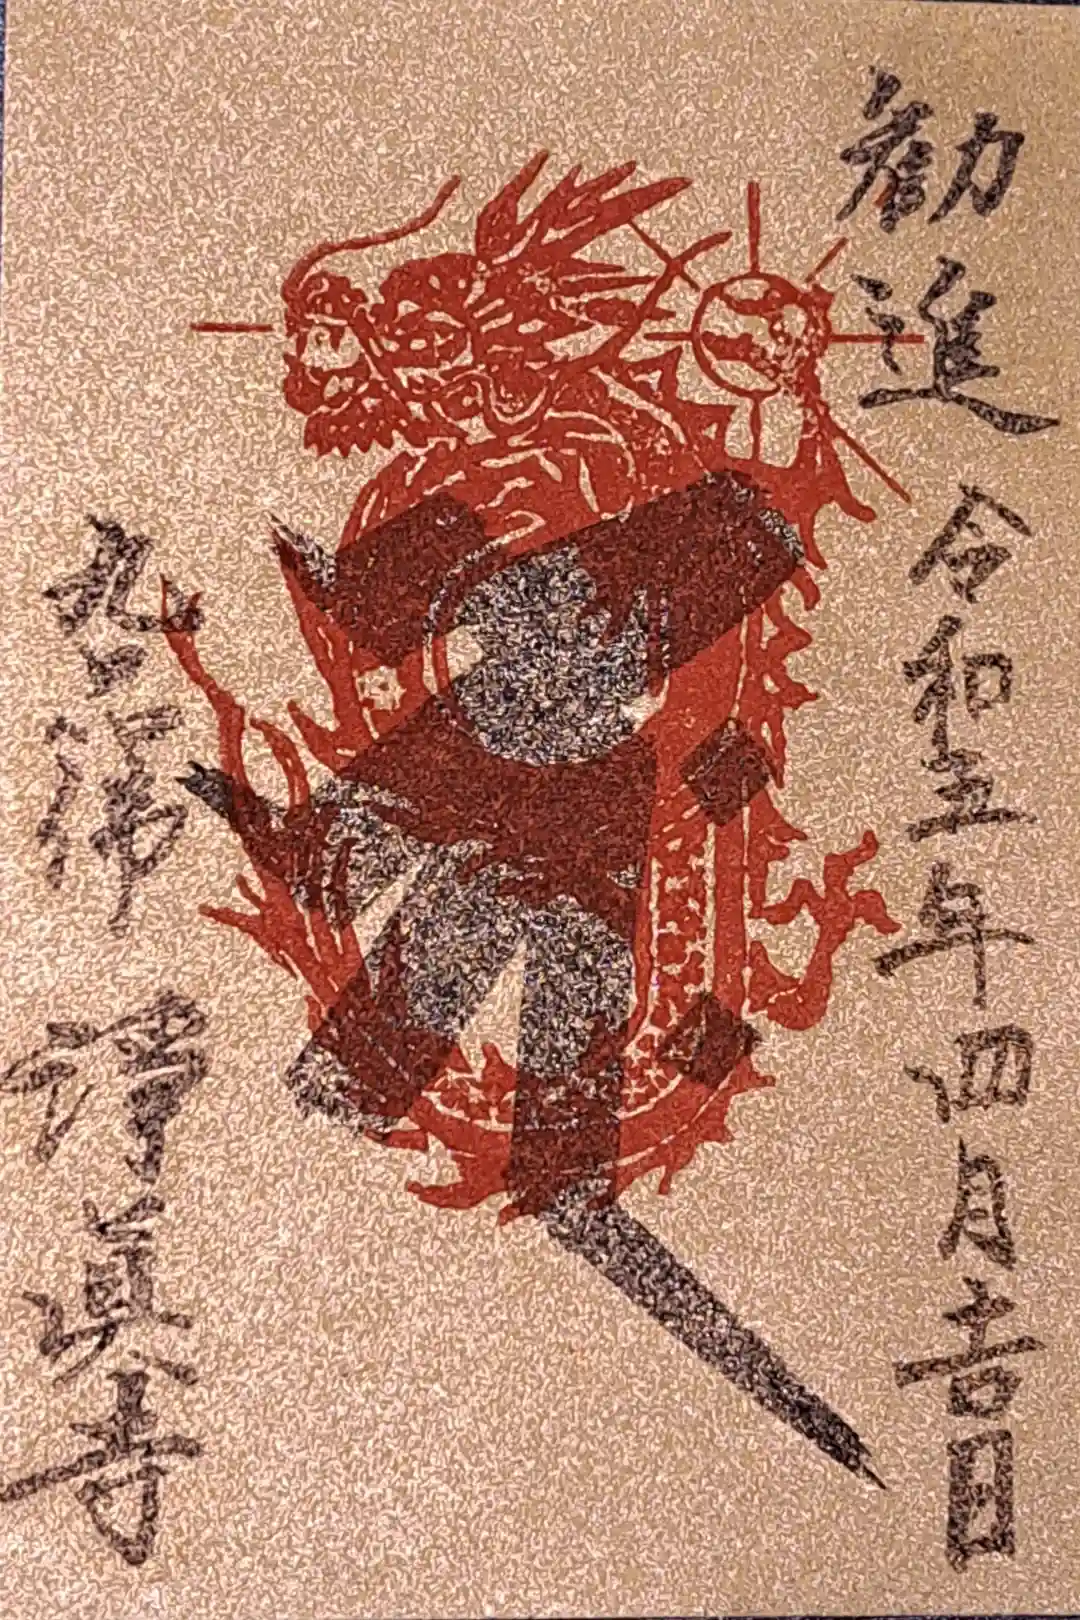 勧進 令和五年四月吉日
九品佛 淨眞寺